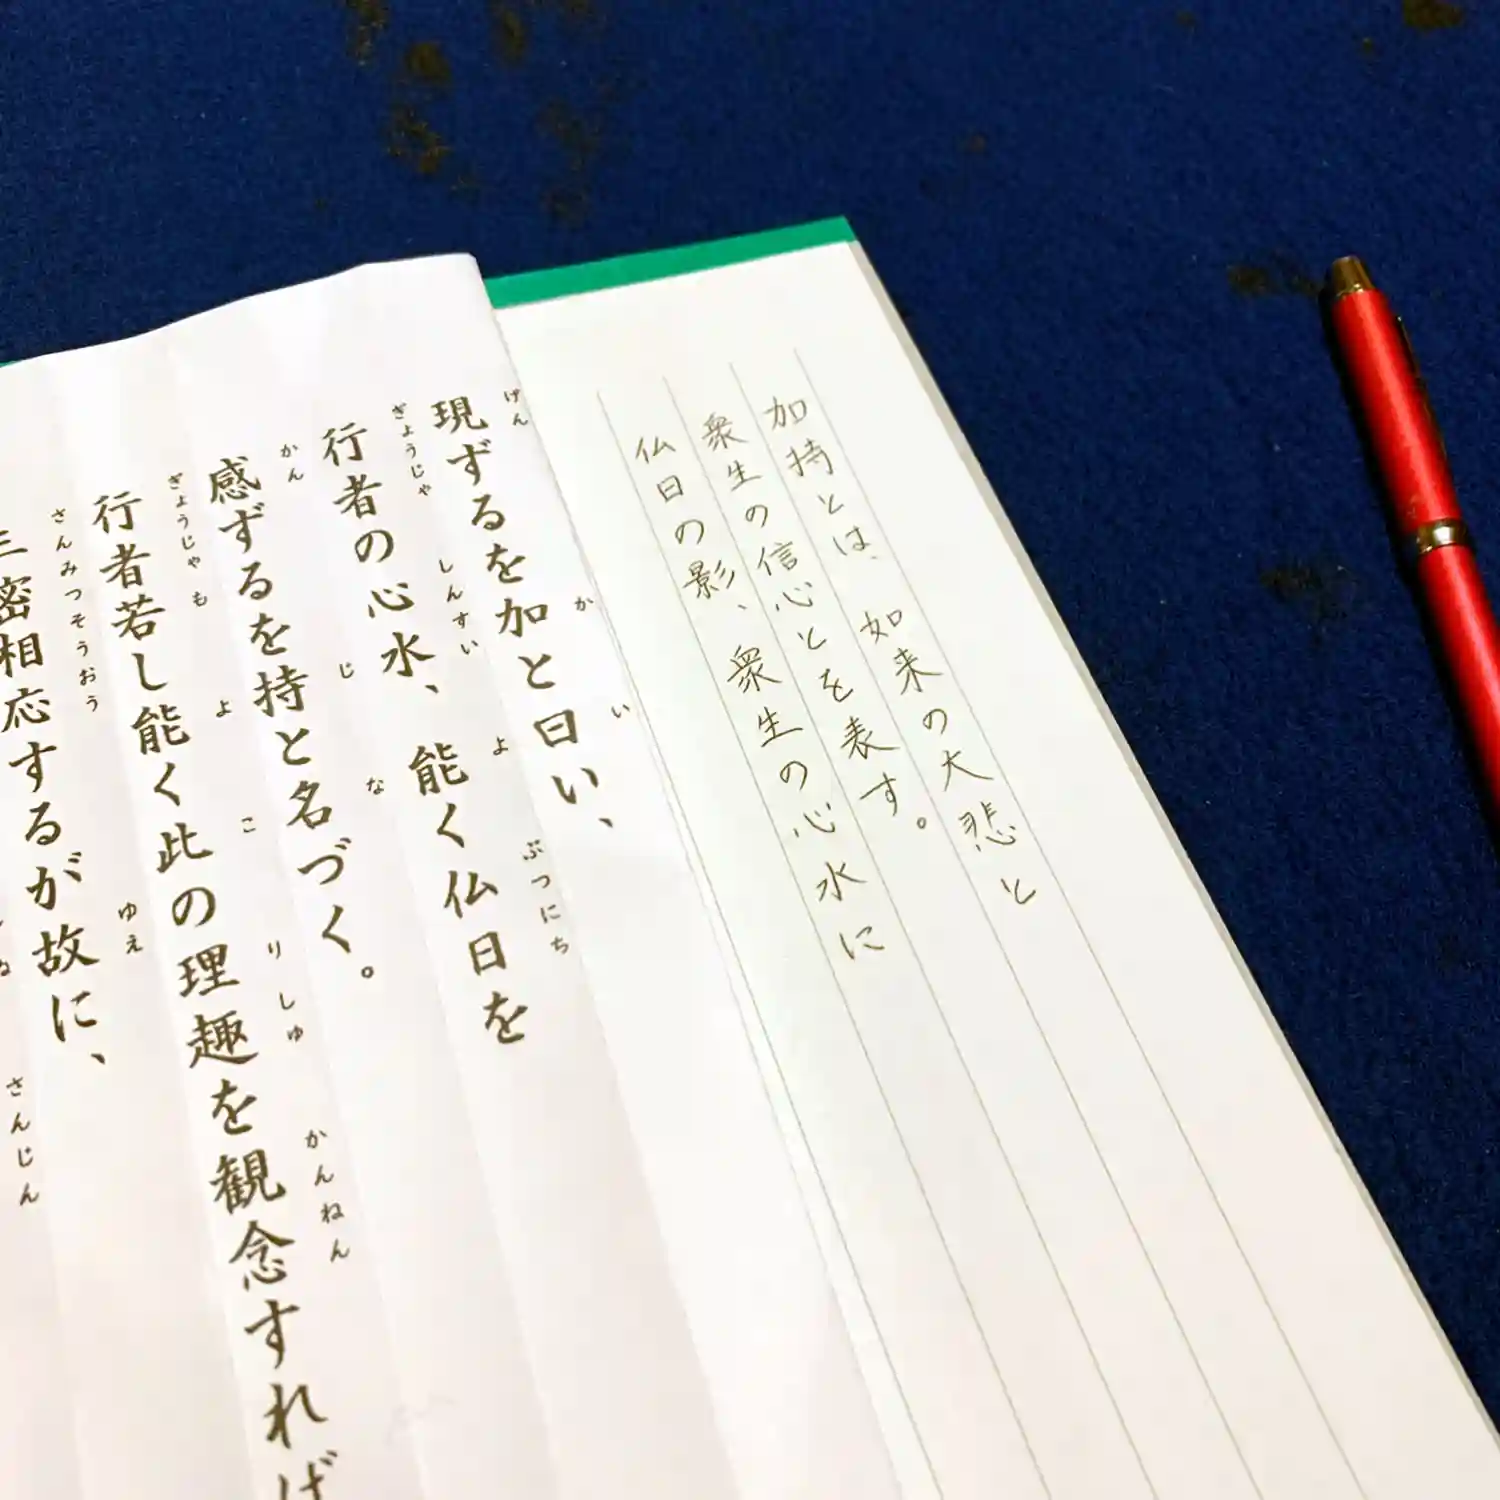 加持とは、如来の大悲と
衆生の信心とを表す。
仏日の影、衆生の心水に
げん
現ずるを加と曰い、
か
い
ぎょうじゃ
しんすい
よ
ぶつにち
行者の心水、能く仏日を
かん
じ
な
感ずるを持と名づく。
ぎょうじゃ
も
よ
こ
りしゅ
かんねん
行者若し能く此の理趣を観念すれば
さんみつそうおう
ゆえ
三密相応するが故に、
さんじん